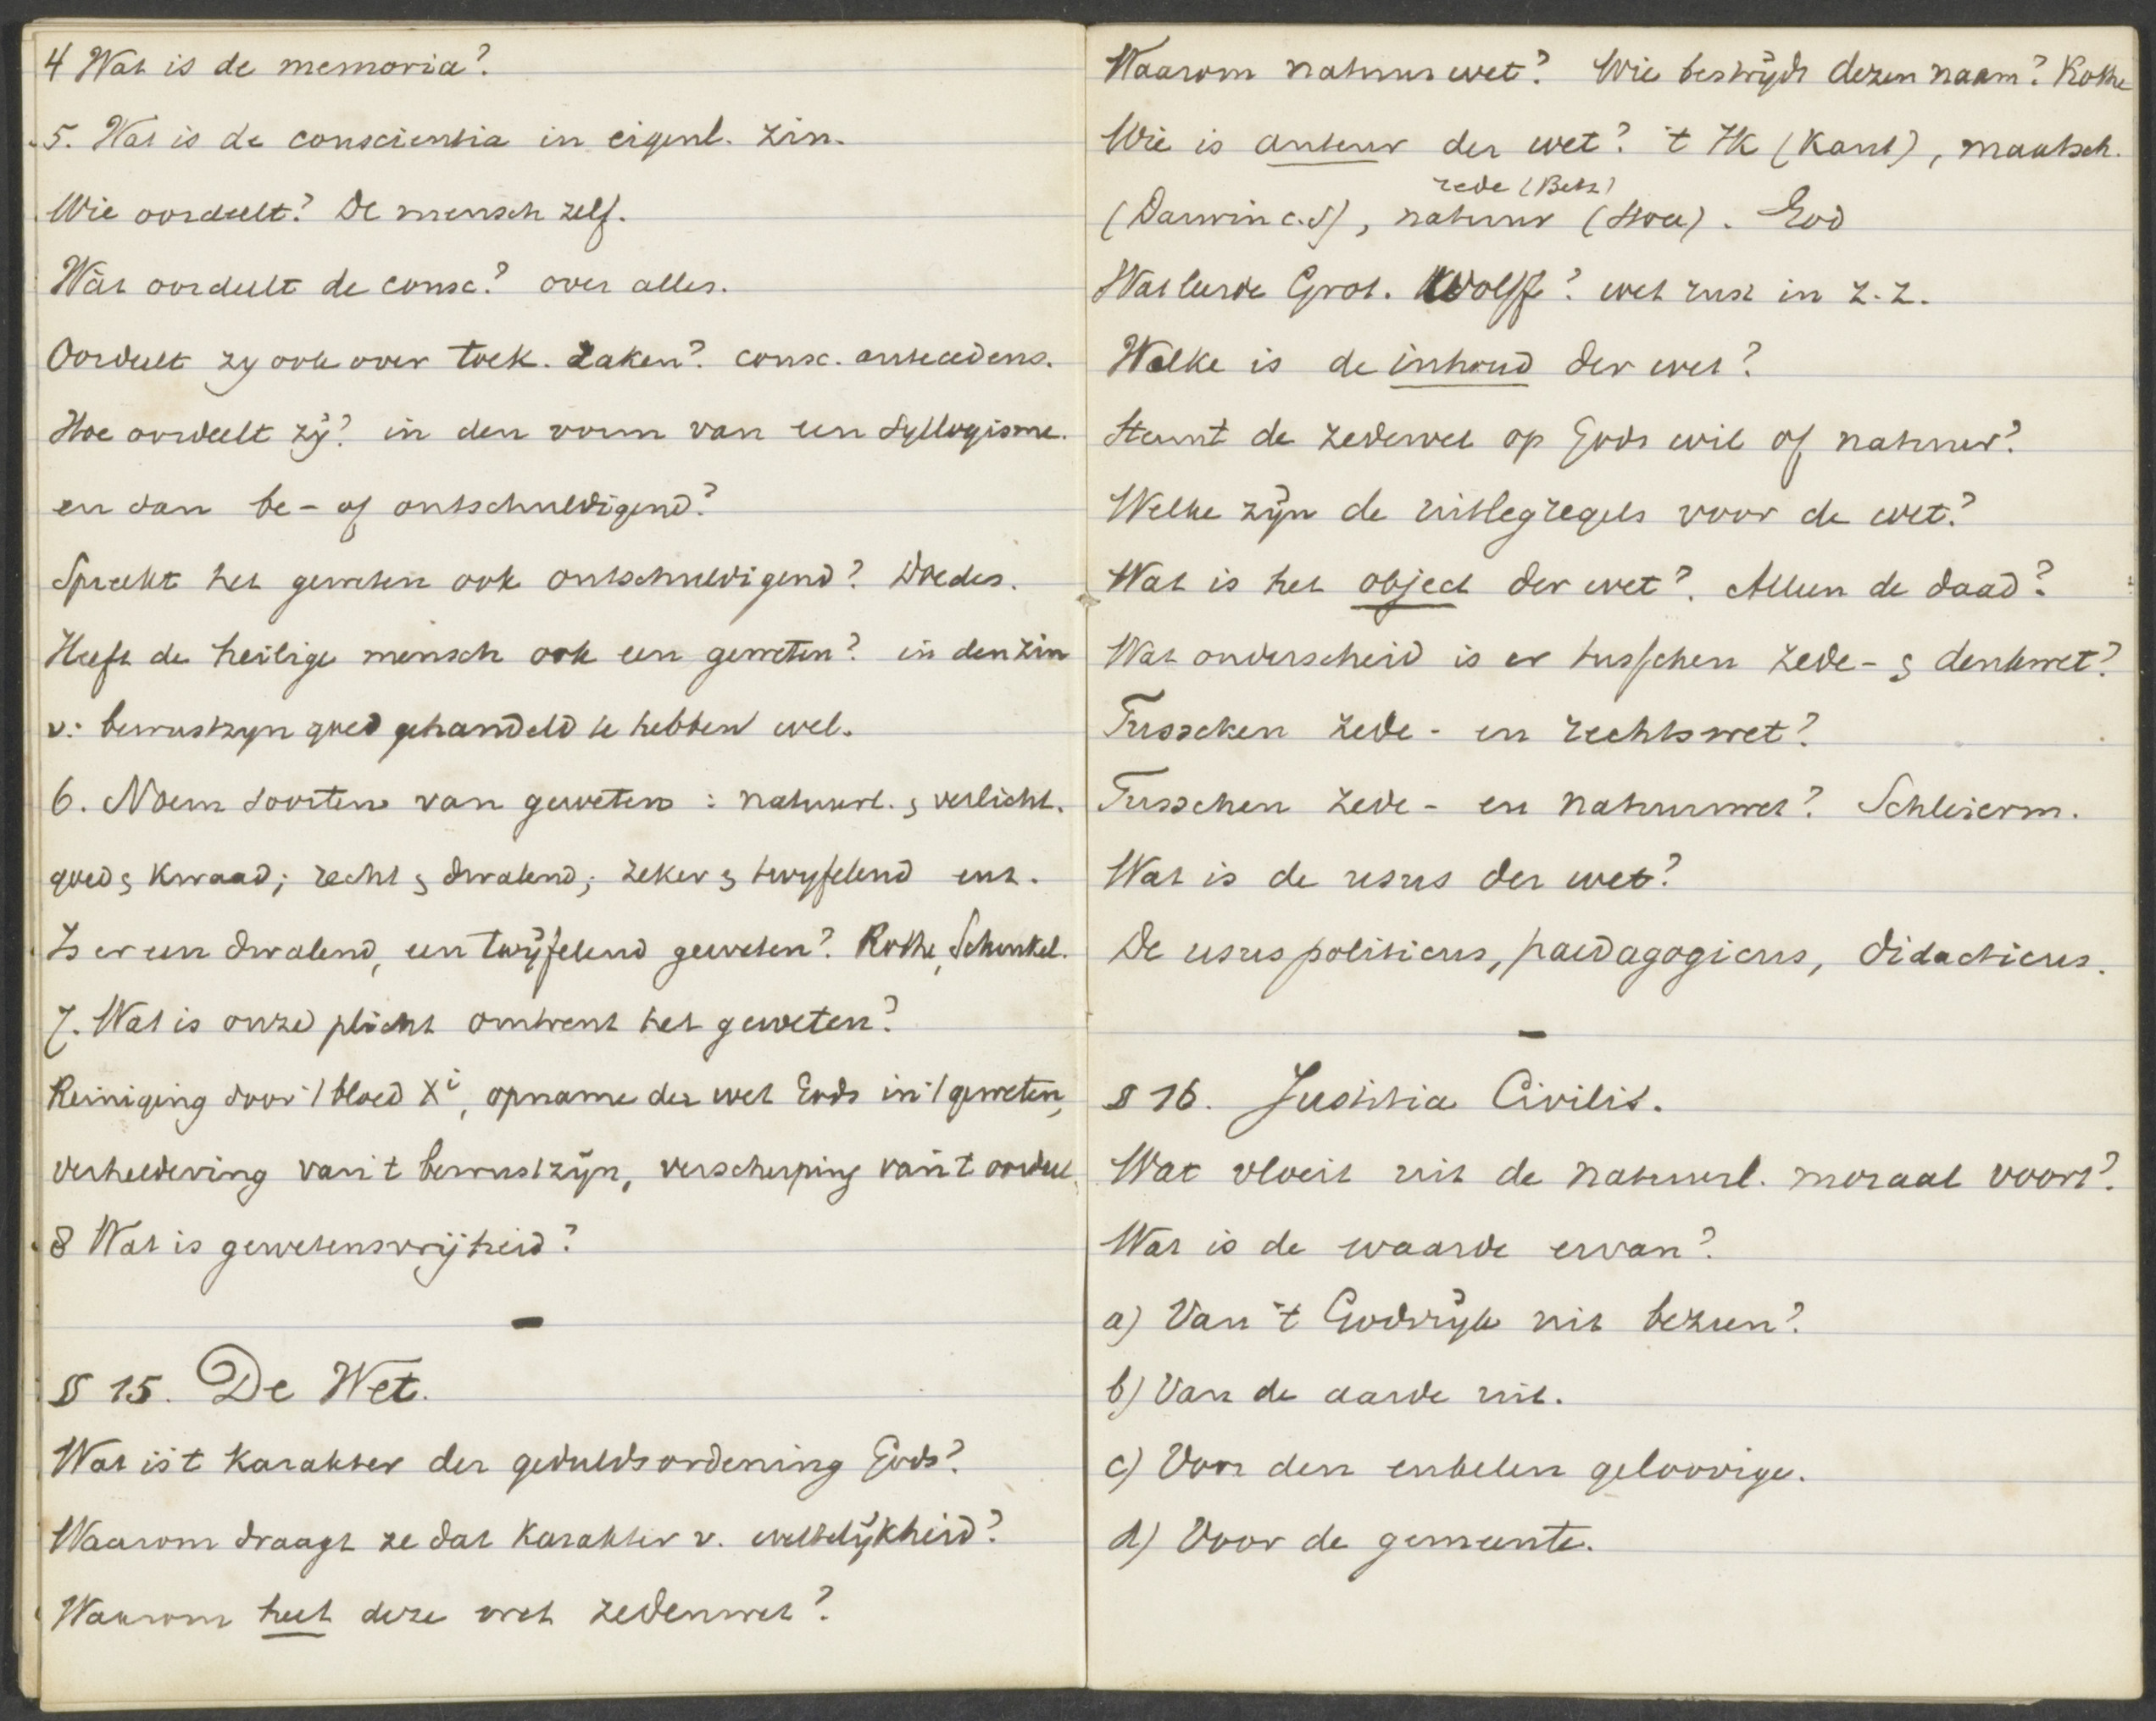 4 Wat is de memoria?
5. Wat is de conscientia in eigenl. zin.
Wie oordeelt? De mensch zelf.
Wàt oordeelt de consc? over alles.
Oordeelt zy ook over toek. zaken? consc. antecedens.
Hoe oordeelt zij? in den vorm van een syllogisme.
en dan be- of ontschuldigend?
Spreekt het geweten ook ontschuldigend? Doedes.
Heeft de heilige mensch ook een geweten? in den zin
v: bewustzyn goed gehandeld te hebben wel.
6. Noem soorten van geweten : natuurl. & verlicht.
goed & kwaad; recht & dwalend; zeker & twyfelend enz.
Is er een dwalend, een twijfelend geweten? Rothe, Schenkel.
7. Wat is onze plicht omtrent het geweten?
Reiniging door 't bloed Xi, opname der wet Gods in 't geweten,
verheldering van 't bewustzijn, verscherping van 't oordeel.
8 Wat is gewetensvrijheid?
§ 15. De Wet.
Wat is 't karakter der geduldsordening Gods?
Waarom draagt ze dat karakter v. wettelijkheid?
Waarom heet deze wet zedenwet?
Waarom natuurwet? Wie bestrijdt dezen naam? Rothe
Wie is auteur der wet? 't Ik (Kant), maatsch.
rede (Betz)
(Darwin c.s), natuur (Stoa). God
Wat leerde Grot. Wolff? wet rust in z.z.
Welke is de inhoud der wet?
Steunt de zedewet op Gods wil of natuur?
Welke zijn de uitlegregels voor de wet?
Wat is het object der wet? Alleen de daad?
Wat onderscheid is er tusschen zede- & denkwet?
Tusschen zede- en rechtswet?
Tusschen zede- en natuurwet? Schleierm.
Wat is de usus der wet?
De usus politicus, paedagogicus, didacticus.
§ 16. Justitia Civilis.
Wat vloeit uit de natuurl. moraal voort?
Wat is de waarde ervan?
a) Van 't Godsrijk uit bezien?
b) Van de aarde uit.
c) Voor den enkelen geloovige.
d) Voor de gemeente.